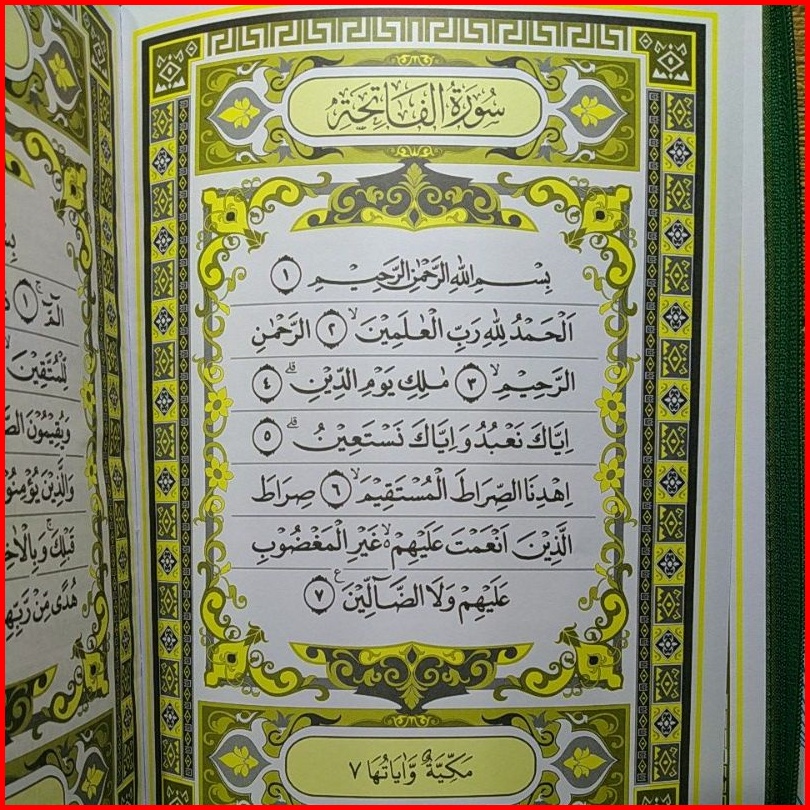 سُوْرَةُ الْفَاتِحَةِ
بِسْمِ اللّٰهِ الرَّحْمٰنِ الرَّحِيْمِ ١
اَلْحَمْدُ لِلّٰهِ رَبِّ الْعٰلَمِيْنَۙ ٢ الرَّحْمٰنِ
الرَّحِيْمِۙ ٣ مٰلِكِ يَوْمِ الدِّيْنِۗ ٤
اِيَّاكَ نَعْبُدُ وَاِيَّاكَ نَسْتَعِيْنُۗ ٥
اِهْدِنَا الصِّرَاطَ الْمُسْتَقِيْمَۙ ٦ صِرَاطَ
الَّذِيْنَ اَنْعَمْتَ عَلَيْهِمْ ەۙ غَيْرِ الْمَغْضُوْبِ
عَلَيْهِمْ وَلَا الضَّاۤلِّيْنَࣖ ٧
مَكِّيَّةٌ وَّاٰيَاتُهَا ٧
الۤمّۤۚ ١
لِّلْمُتَّقِيْنَۙ
وَيُقِيْمُوْنَ
وَالَّذِيْنَ يُؤْمِنُوْ
قَبْلِكَۚ وَبِالْاٰخِ
هُدًى مِّنْ رَّبِّهِ